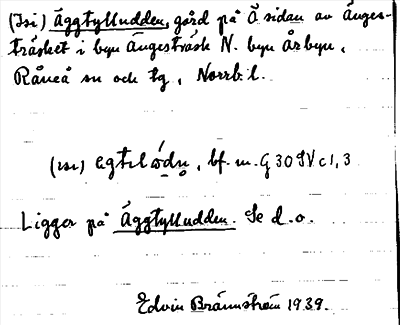 (Isi) Äggtylludden, gård på Ö sidan av Änges-
träsket i byn Ängesträsk N. byn Årbyn,
Råneå sn och tg, Norrb. l.
(isi) , bf. m. G 30 IV c 1, 3
Ligger på Äggtylludden. Se d. o.
Edvin Brännström 1939.